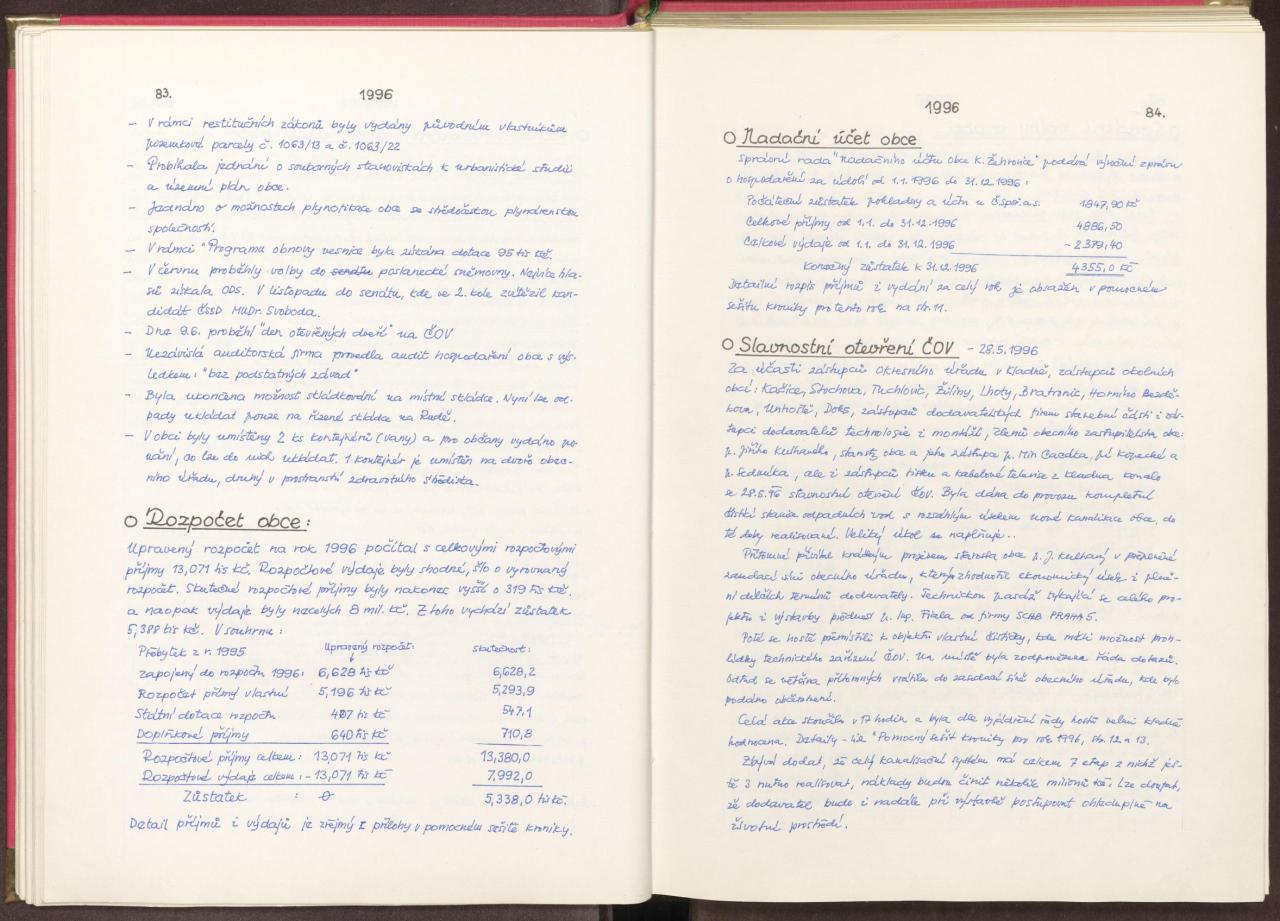 83. 1996
- V rámci restitučních zákonů byly vydány původním vlastníkům
pozemkové parcely č. 1063/13 a č. 1063/22
- Probíhala jednání o souborných stanoviskách k urbanistické studii
a územní plán obce.
- Jednáno o možnostech plynofikace obce se středočeskou plynárenskou
společností.
- V rámci "Programu obnovy vesnice byla získána dotace 95 tis kč.
- V červnu proběhly volby do senátu poslanecké sněmovny. Nejvíce hla-
sů získala ODS. V listopadu do senátu, kde ve 2. kole zvítězil kan-
didát ČSSD MUDr. Svoboda.
- Dne 9.6. proběhl "den otevřených dveří" na ČOV
- Nezávislá auditorská firma provedla audit hospodaření obce s výs-
ledkem: "bez podstatných závad"
- Byla ukončena možnost skládkování na místní skládce. Nyní lze od-
pady ukládat pouze na řízené skládce na Rudě.
- V obci byly umístěny 2 ks kontejnerů (vany) a pro občany vydáno po-
nání, co lze do nich ukládat. 1 kontejner je umístěn na dvoře obec-
ního úřadu, druhý v prostranství zdravotního střediska.
O Rozpočet obce:
Upravený rozpočet na rok 1996 počítal s celkovými rozpočtovými
příjmy 13,071 tis kč. Rozpočtové výdaje byly shodné, šlo o vyrovnaný
rozpočet. Skutečné rozpočtové příjmy byly nakonec vyšší o 319 tis kč.
a naopak výdaje byly necelých 8 mil. kč. Z toho vychází zůstatek
5,388 tis kč. V souhrnu:
Přebytek z r. 1995 Upravený rozpočet: skutečnost:
zapojený do rozpočtu 1996: 6,628 tis kč 6,628,2
Rozpočet příjmy vlastní 5,196 tis kč 5,293,9
Státní dotace rozpočtu 407 tis kč 547,1
Doplňkové příjmy 640 tis kč 710,8
Rozpočtové příjmy celkem: 13,071 tis kč 13,380,0
Rozpočtové výdaje celkem: - 13,071 tis kč 7,992,0
Zůstatek : 0 5,338,0 tis kč.
Detail příjmů i výdajů je zřejmý z přílohy v pomocném sešitě kroniky.
1996 84.
O Nadační účet obce
Správní rada "nadačního účtu obce K. Žehrovice" podává výroční zprávu
o hospodaření za údobí od 1.1. 1996 do 31.12.1996:
Počáteční zůstatek pokladny a účtu u Č.spoř.a.s. 1847,90 kč
Celkové příjmy od 1.1. do 31.12.1996 4886,50
Celkové výdaje od 1.1. do 31.12.1996 - 2379,40
Konečný zůstatek k 31.12.1996 4355,0 kč
Detailní rozpis příjmů i vydání za celý rok je obsažen v pomocném
sešitu kroniky pro tento rok na str. 11.
O Slavnostní otevření ČOV - 28.5.1996
Za účasti zástupců Okresního úřadu v Kladně, zástupců okolních
obcí: Kačice, Stochova, Tuchlovic, Žiliny, Lhoty, Bratronic, Horního Bezdě-
kova, Unhoště, Doks, zástupců dodavatelských firem stavební části i zás-
tupců dodavatelů technologie i montáží, členů obecního zastupitelstva obce:
p. Jiřího Kulhavého, starosty obce a jeho zástupce p. Min
p. Sedmíka, ale i zástupců tisku a kabelové televize z Kladna konalo
se 28.5.96 slavnostní otevření ČOV. Byla dána do provozu kompletní
čistící stanice odpadních vod s rozsáhlým úsekem nové kanalizace obce, do
té doby realizované. Veliký úkol se naplňuje..
Přítomné přivítal krátkým projevem starosta obce p. J. Kulhavý v přeplněné
zasedací síni obecního úřadu, kterým zhodnotil ekonomický úsek i plně-
ní dílčích termínů dodavateli. Technickou pasáž týkající se celého pro-
jektu i výstavby přednesl p. Ing. Fiala od firmy SCHB PRAHA 5.
Poté se hosté přemístili k objektu vlastní čističky, kde měli možnost proh-
lídky technického zařízení ČOV. Na místě byla zodpovězena řada dotazů.
Odtud se většina přítomných vrátila do zasedací síně obecního úřadu, kde bylo
podáno občerstvení.
Celá akce skončila v 17 hodin a byla dle vyjádření řady hostů velmi kladně
hodnocena. Detaily - viz "Pomocný sešit kroniky pro rok 1996, str. 12 a 13.
Zbývá dodat, že celý kanalizační systém má celkem 7 etap z nichž ješ-
tě 3 nutno realizovat, náklady budou činit několik milionů kč. Lze doufat,
že dodavatel bude i nadále při výstavbě postupovat ohleduplně na
životní prostředí.